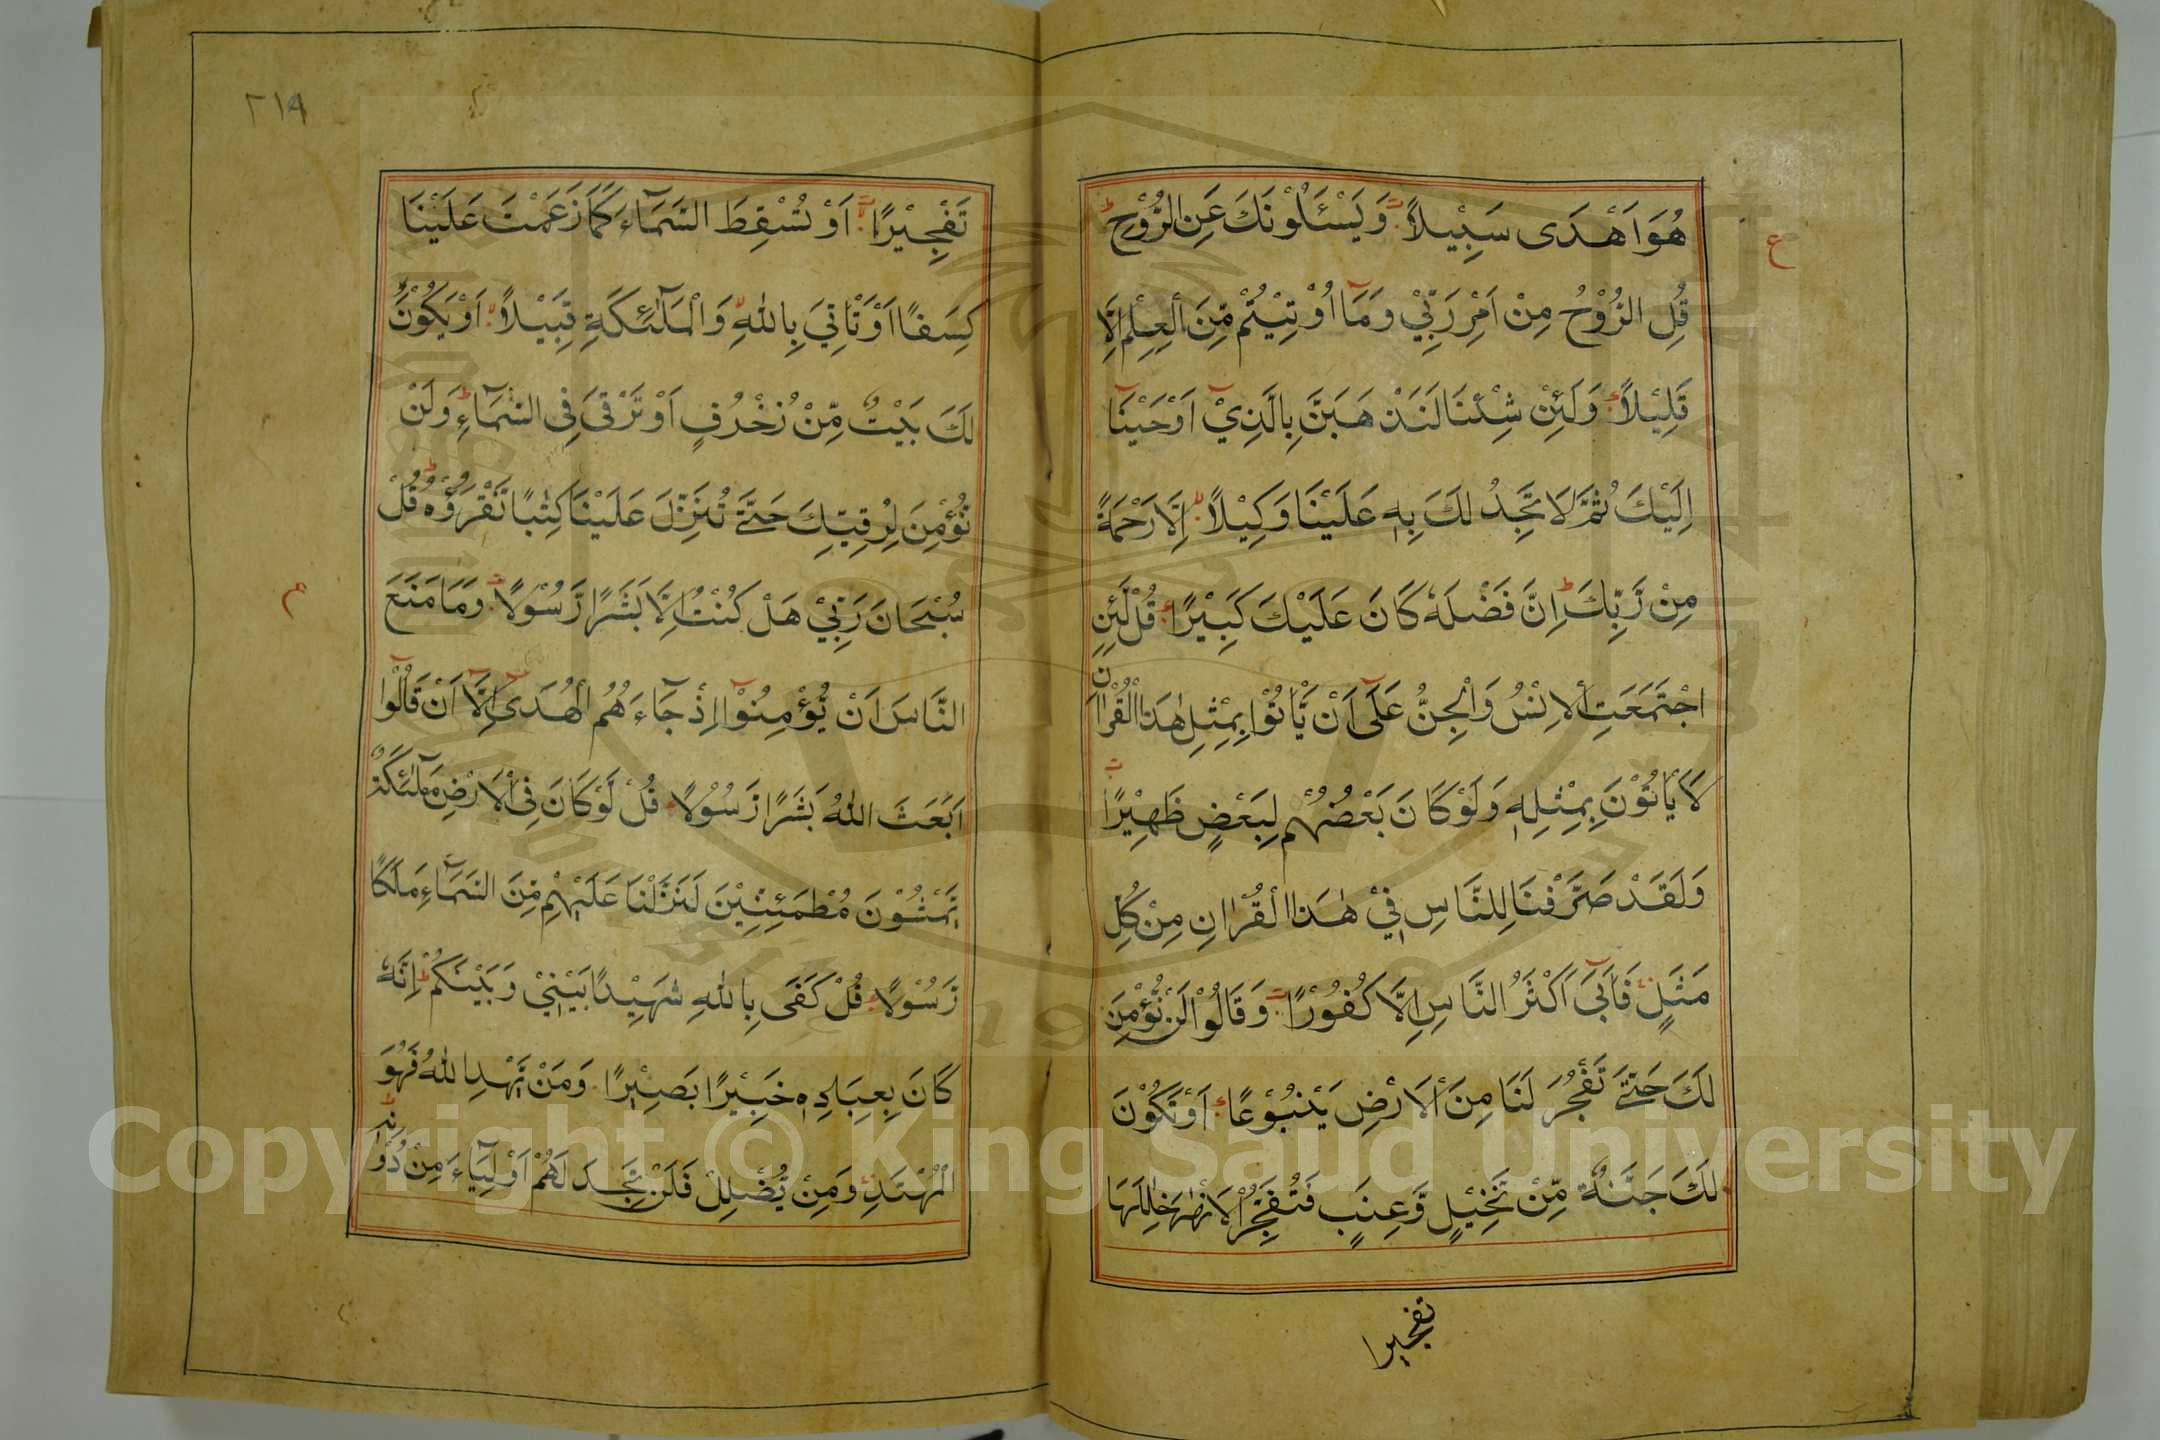 هُوَ اَهْدَى سَبِيْلاً وَيَسْئَلُوْنَكَ عَنِ الرُّوْحِ
قُلِ الرُّوْحُ مِنْ اَمْرِ رَبِّيْ وَمَآ اُوْتِيْتُمْ مِّنَ الْعِلْمِ اِلَّا
قَلِيْلاً وَلَئِنْ شِئْنَا لَنَذْهَبَنَّ بِالَّذِيْٓ اَوْحَيْنَآ
اِلَيْكَ ثُمَّ لَا تَجِدُ لَكَ بِهٖ عَلَيْنَا وَكِيْلاً اِلَّا رَحْمَةً
مِنْ رَّبِّكَ اِنَّ فَضْلَهٗ كَانَ عَلَيْكَ كَبِيْرًا قُلْ لَّئِنِ
اجْتَمَعَتِ الْاِنْسُ وَالْجِنُّ عَلَٓى اَنْ يَّاْتُوْا بِمِثْلِ هٰذَا الْقُرْاٰنِ
لَا يَاْتُوْنَ بِمِثْلِهٖ وَلَوْ كَانَ بَعْضُهُمْ لِبَعْضٍ ظَهِيْرًا
وَلَقَدْ صَرَّفْنَا لِلنَّاسِ فِيْ هٰذَا الْقُرْاٰنِ مِنْ كُلِّ
مَثَلٍ فَاَبٰٓى اَكْثَرُ النَّاسِ اِلَّا كُفُوْرًا وَقَالُوْا لَنْ نُّؤْمِنَ
لَكَ حَتّٰى تَفْجُرَ لَنَا مِنَ الْاَرْضِ يَنْبُوْعًا اَوْ تَكُوْنَ
لَكَ جَنَّةٌ مِّنْ نَّخِيْلٍ وَّعِنَبٍ فَتُفَجِّرَ الْاَنْهٰرَ خِلٰلَهَا
تفجيرا
ع
٢١٩
تَفْجِيْرًا اَوْ تُسْقِطَ السَّمَآءَ كَمَا زَعَمْتَ عَلَيْنَا
كِسَفًا اَوْ تَاْتِيَ بِاللّٰهِ وَالْمَلٰٓئِكَةِ قَبِيْلاً اَوْ يَكُوْنَ
لَكَ بَيْتٌ مِّنْ زُخْرُفٍ اَوْ تَرْقٰى فِى السَّمَآءِ وَلَنْ
نُؤْمِنَ لِرُقِيِّكَ حَتّٰى تُنَزِّلَ عَلَيْنَا كِتٰبًا نَّقْرَؤُهٗ قُلْ
سُبْحَانَ رَبِّيْ هَلْ كُنْتُ اِلَّا بَشَرًا رَّسُوْلًا وَمَا مَنَعَ
النَّاسَ اَنْ يُّؤْمِنُوْٓا اِذْ جَآءَهُمُ الْهُدٰٓى اِلَّآ اَنْ قَالُوْٓا
اَبَعَثَ اللّٰهُ بَشَرًا رَّسُوْلًا قُلْ لَّوْ كَانَ فِى الْاَرْضِ مَلٰٓئِكَةٌ
يَّمْشُوْنَ مُطْمَئِنِّيْنَ لَنَزَّلْنَا عَلَيْهِمْ مِّنَ السَّمَآءِ مَلَكًا
رَّسُوْلًا قُلْ كَفٰى بِاللّٰهِ شَهِيْدًا بَيْنِيْ وَبَيْنَكُمْ اِنَّهٗ
كَانَ بِعِبَادِهٖ خَبِيْرًا بَصِيْرًا وَمَنْ يَّهْدِ اللّٰهُ فَهُوَ
الْمُهْتَدِ وَمَنْ يُّضْلِلْ فَلَنْ تَجِدَ لَهُمْ اَوْلِيَآءَ مِنْ دُوْنِهٖ
Copyright © King Saud University